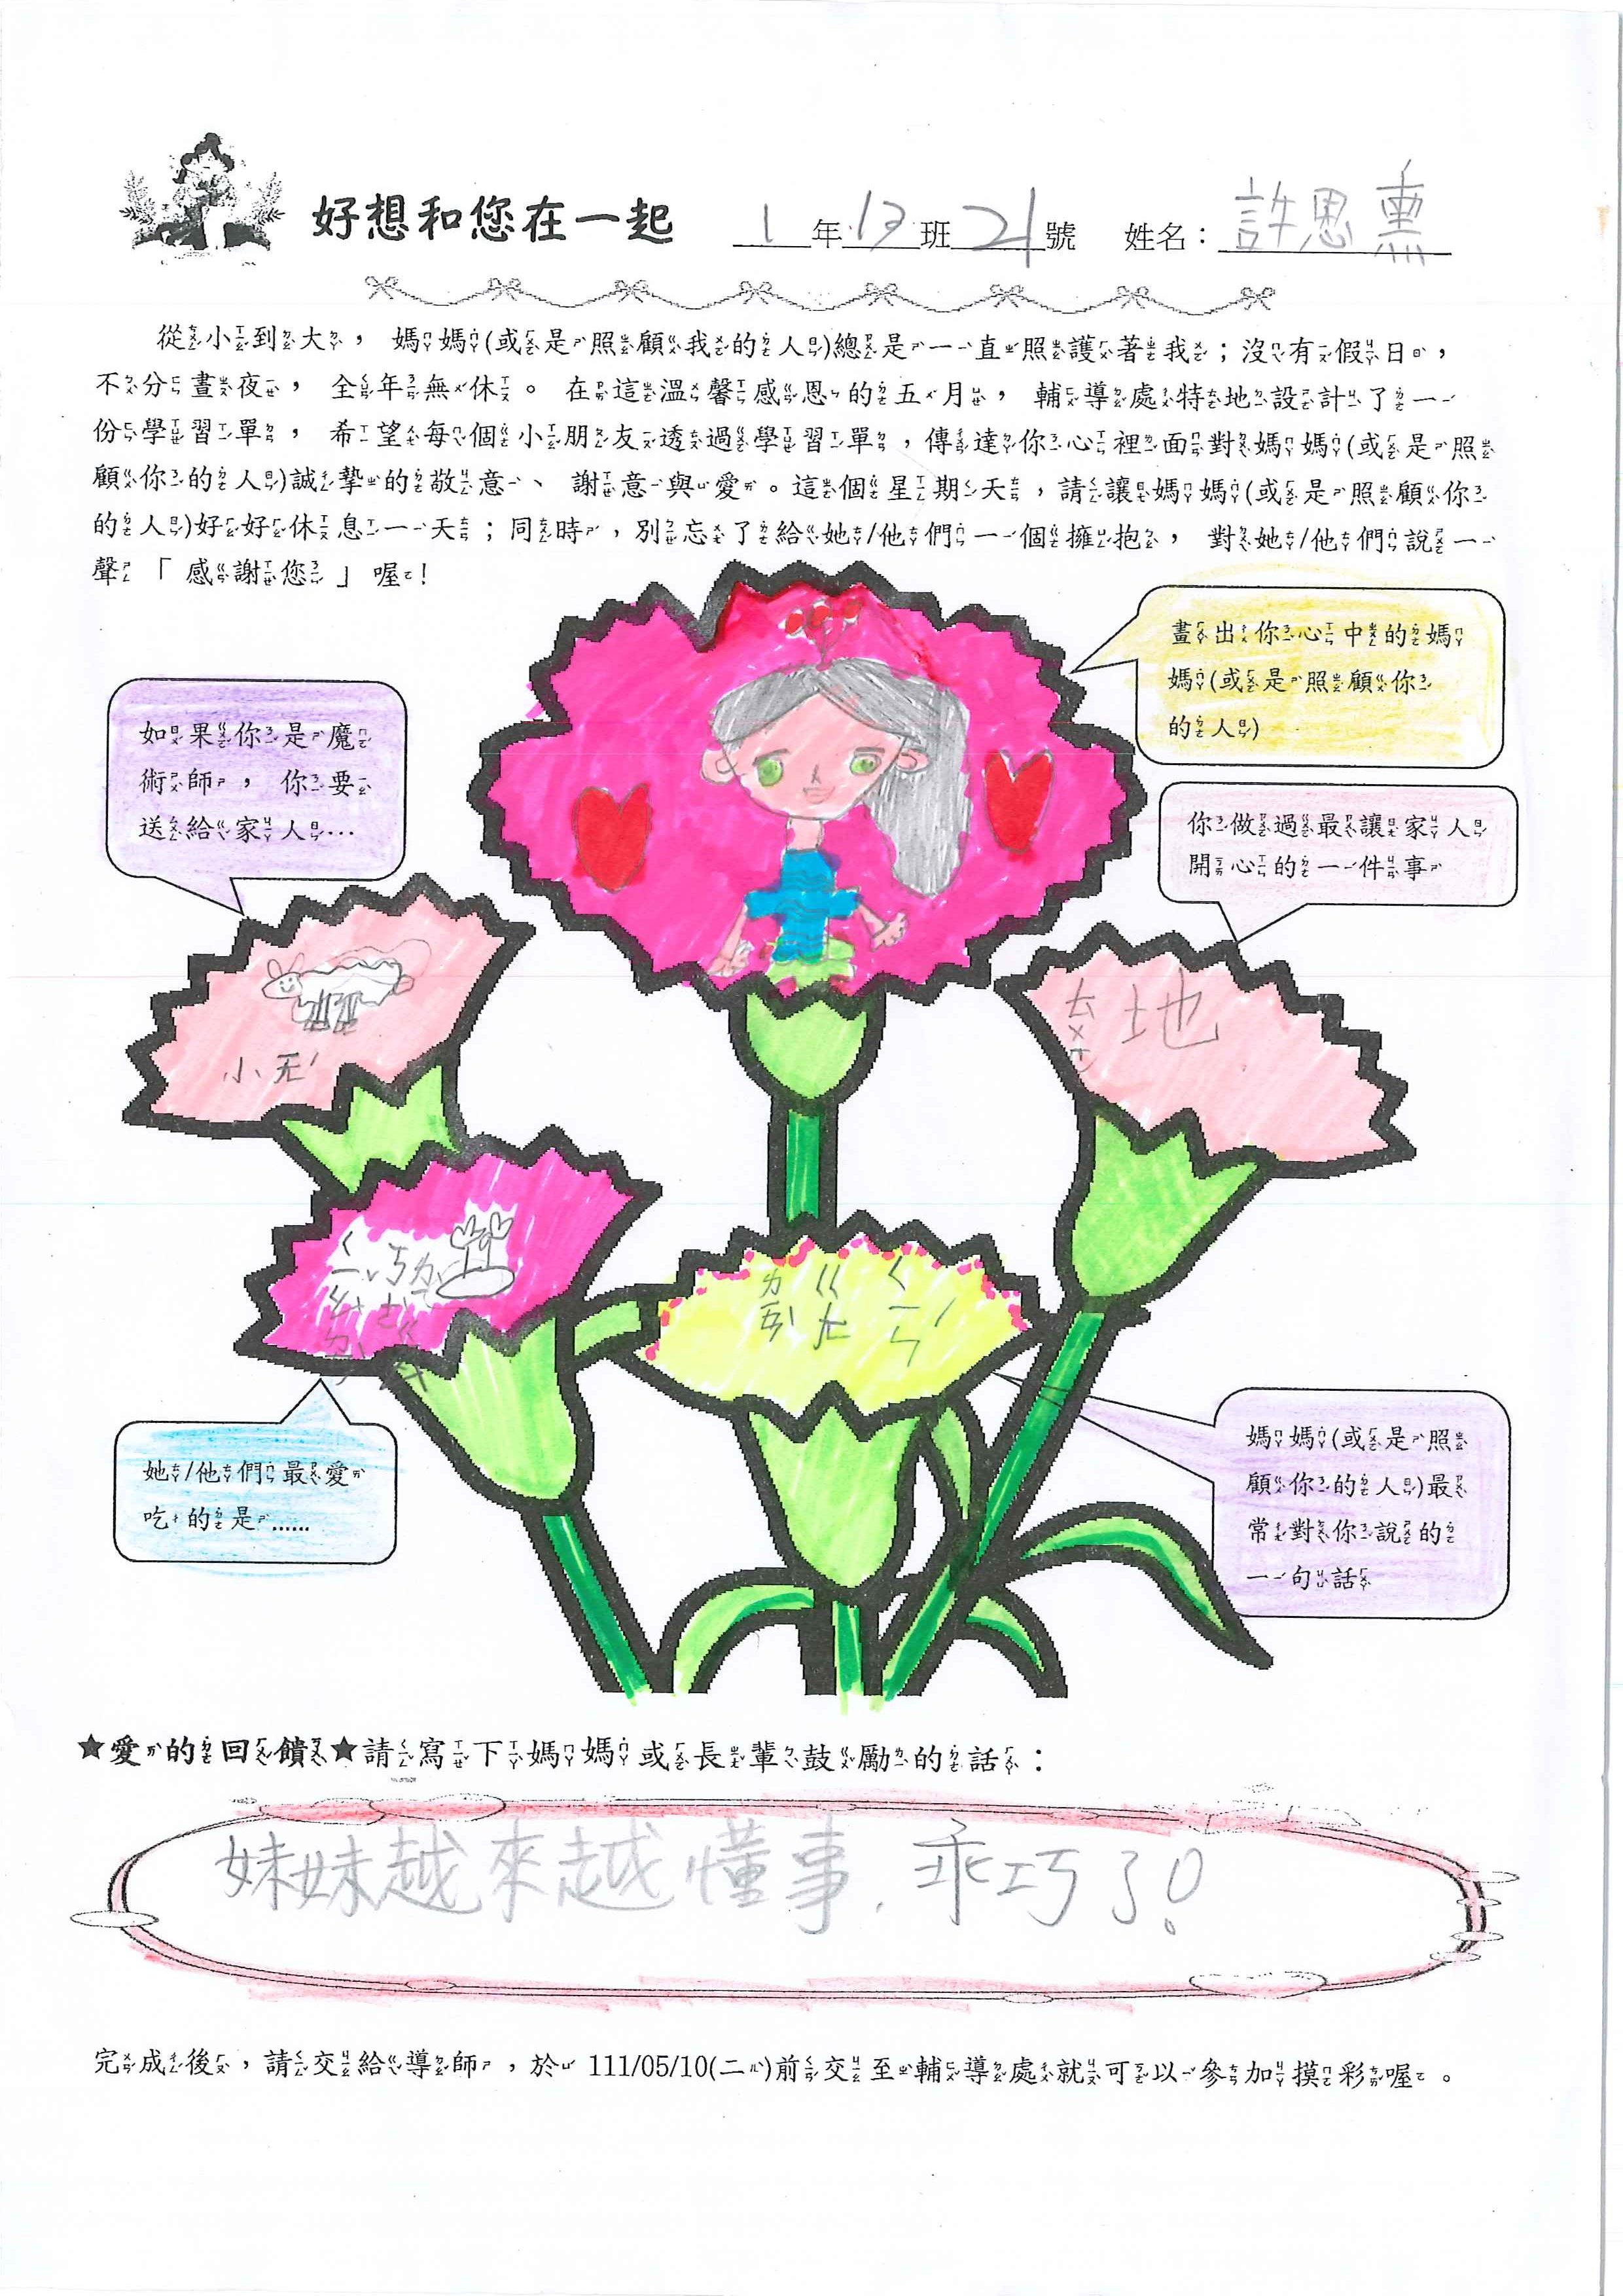 好想和您在一起 1年13班21號 姓名：許恩熏
從小到大，媽媽(或是照顧我的人)總是一直照護著我；沒有假日，
不分晝夜，全年無休。在這溫馨感恩的五月，輔導處特地設計了一
份學習單，希望每個小朋友透過學習單，傳達你心裡面對媽媽(或是照
顧你的人)誠摯的敬意、謝意與愛。這個星期天，請讓媽媽(或是照顧你
的人)好好休息一天；同時，別忘了給她/他們一個擁抱，對她/他們說一
聲「感謝您」喔！
畫出你心中的媽
媽(或是照顧你
的人)
如果你是魔
術師，你要
送給家人…
你做過最讓家人
開心的一件事
小ㄞˋ
ㄊㄨㄛ地
ㄌㄢˋ ㄍㄤ ㄑㄧㄣˊ
她/他們最愛
吃的是……
媽媽(或是照
顧你的人)最
常對你說的
一句話
★愛的回饋★請寫下媽媽或長輩鼓勵的話：
妹妹越來越懂事，乖巧了！
完成後，請交給導師，於 111/05/10(二)前交至輔導處就可以參加摸彩喔。